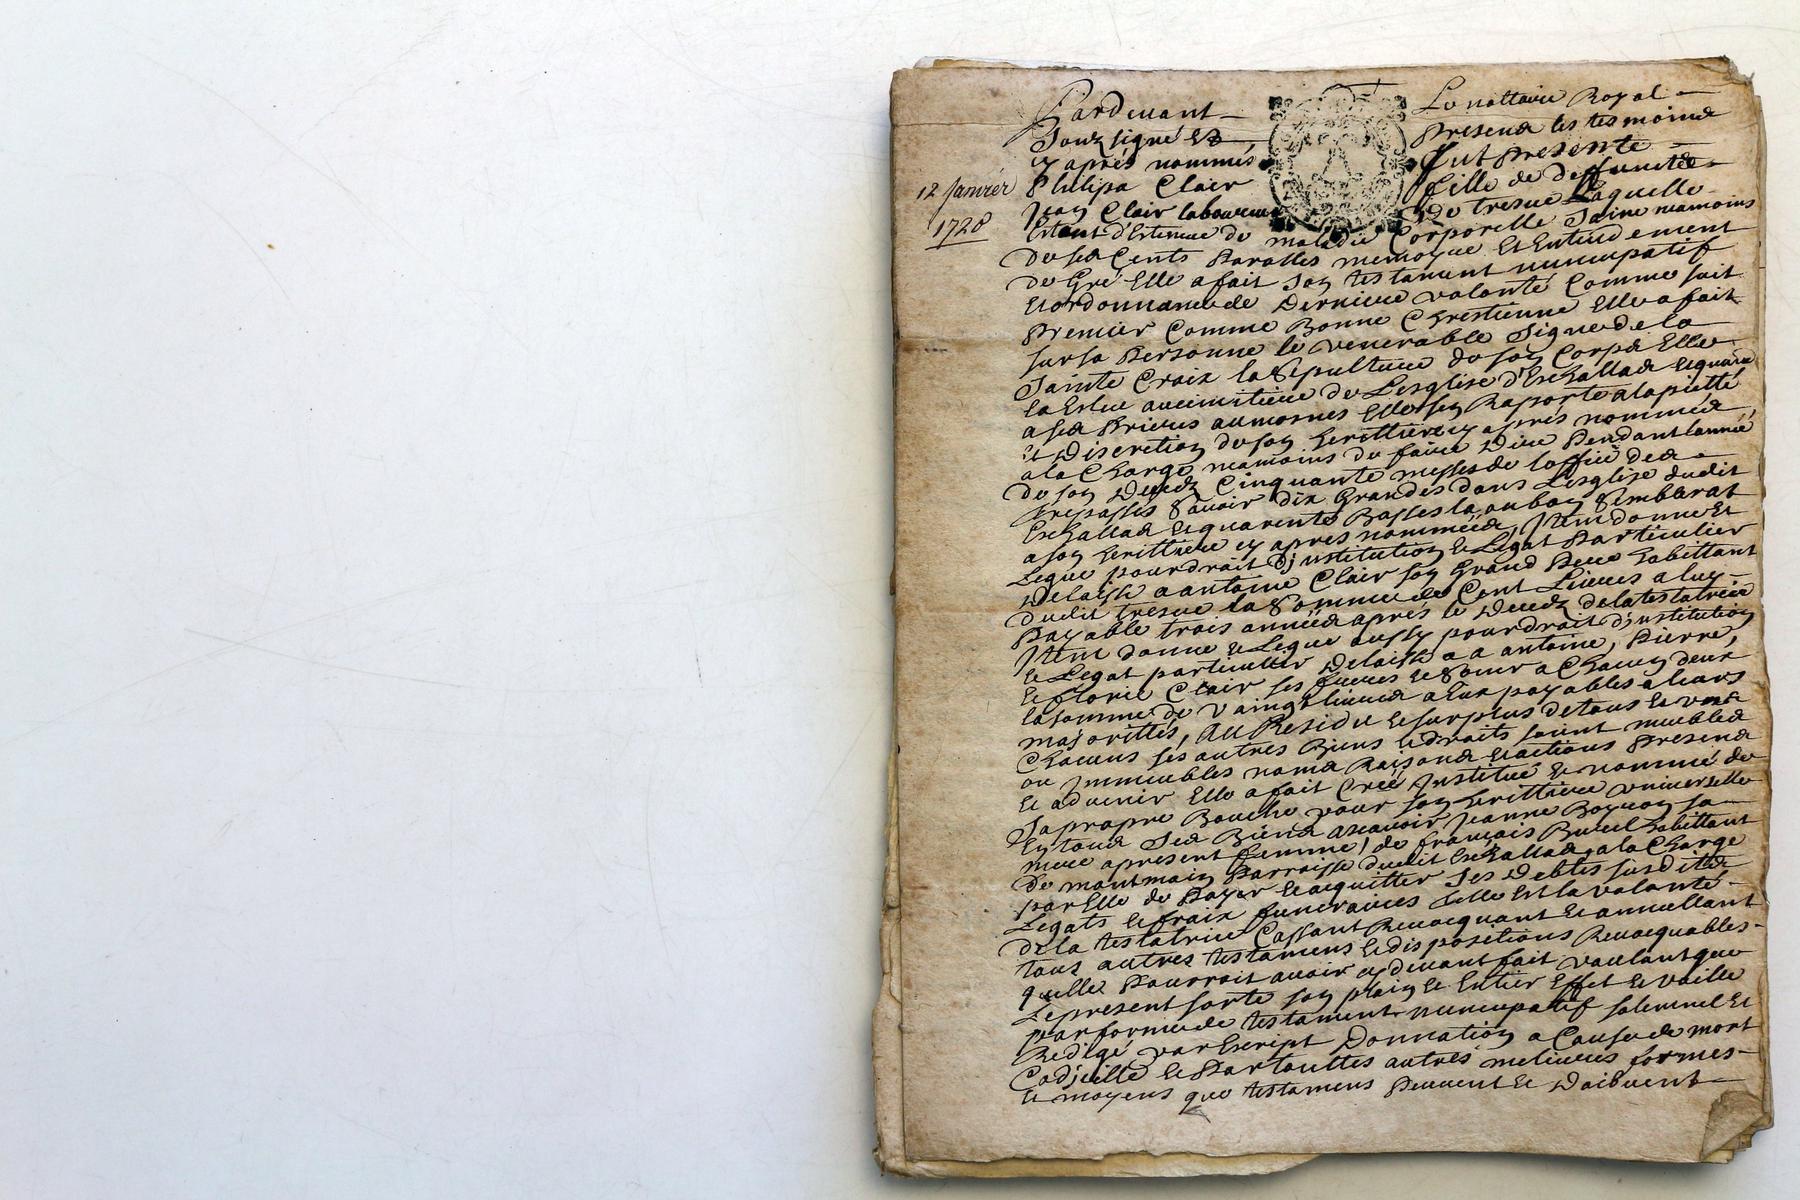 Pardevant Le nottaire Royal
Souz signé Et Presens les tesmoins
cy aprés nommés fut presente
12 Janvier
1728
Philipa Clair fille de deffunct
Jean Clair laboureur de tresue Laquelle
Estant de maladie Corporelle Saine neamoins
de ses Cents Parolles memoyre Et Entendement
de Gré Elle a fait Son testament nuncupatif
Et ordonnance de Derniere volonté Comme suit
Premier Comme Bonne Chrestienne Elle a fait
sur sa Personne le venerable Signe de la
Sainte Croix la Sepulture de son Corps Elle
la Eslue au cimitiere de Lesglise d'Eschallas Et quant
a ses Prieres aumosnes Elle sen Raporte a la pietté
Et Discretion de son herittiere cy aprés nommée
a la Charge neamoins de faire Dire Pendant lannée
de son Decedz Cinquante messes de loffice des
trepassés Sauoir dix Grandes dans Lesglise dudit
Eschallas Et quarente Basses la ou bon Semblerat
a son herittiere cy apres nommée, Item donne Et
Legue pour droit d'institution Et Legat Particulier
Delaisse a antoine Clair son Grand Pere habittant
dudit tresue la Somme de Cent Liures a luy
Payable trois années aprés le Decedz de la testatrice
Item donne Et Legue aussy pour droit d'institution
Et Legat particulier Delaisse a a antoine, Pierre,
Et florie Clair ses freres Et Sœur a Chacun deux
la somme de Vaingt liures a Eux payables a leurs
majorittés, Au Residu Et surplus de tous Et uns
Chacuns ses autres Biens Et droits soint meubles
ou Immeubles noms Raisons Et actions Presens
Et aduenir Elle a fait Creé Institué Et nommé de
Sa propre Bouche pour son herittiere vniuerselle
En tous Ses Biens ascauoir Jeanne sa
mere apresent femme de françois habittant
de montmain Parroisse dudit Eschallas a la Charge
par Elle de Payer Et acquitter Ses Debtes susdites
Legats Et fraix funeraires telle Est la volanté
de la testatrice Cassant Reuocquant Et annullant
tous autres testamens Et dispositions Reuocquables
quelle Pourroit auoir cy deuant fait voulant que
Le present sorte son plain Et Entier Effet Et vaille
par forme de testament nuncupatif solemnel Et
Redigé par Escript Donnation a Cause de mort
Codicille Et Par touttes autres melieures formes
Et moyens que testamens Peuuent Et Doibuent